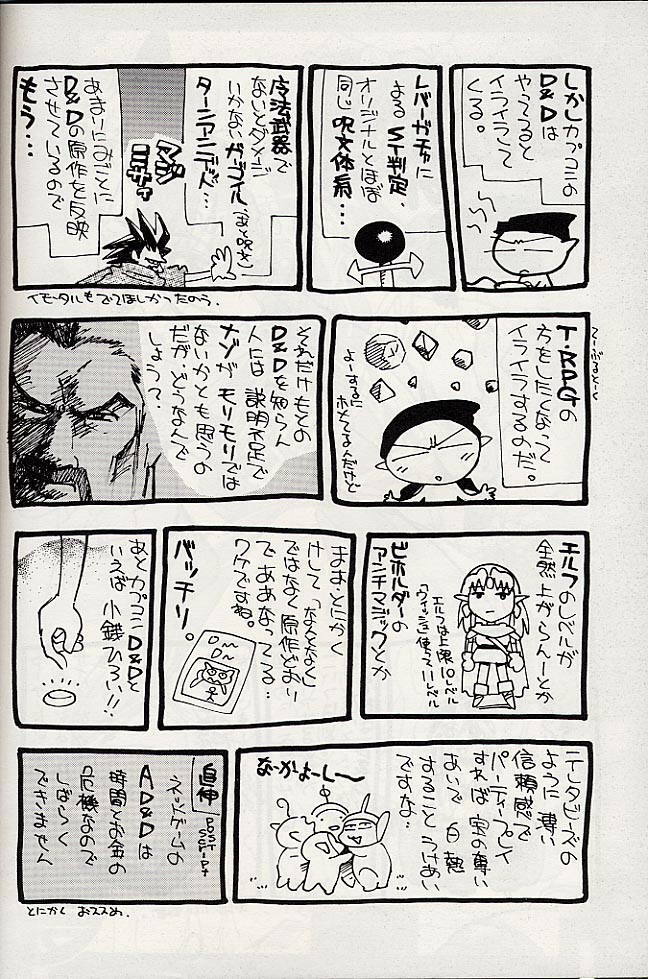 しかしカプコンの
D&Dは
やってると
イライラして
くる。
レバーガチャに
よるST判定、
オリジナルとほぼ
同じ呪文体系…
魔法武器で
ないとダメージ
いかないガーゴイル(まと呪文)
ターンアンデッド…
マジ
ミサイ
あまりにみごとに
D&Dの原作を反映
させているので
もう…
イモータルもでてほしかったのう。
てーぶるとーく
T・RPGの
方をしたくなって
イライラするのだ。
よーするに
ホメてるんだけど
それだけもとの
D&Dを知らん
人には説明不足で
ナゾがモリモリでは
ないかとも思うの
だが、どうなんで
しょうって、
エルフのレベルが
全然上がらんーとか
エルフは上限10レベル
「ウィッシュ」使って11レベル
ビホルダーの
アンチマジックとか
まあ、とにかく
けして「なんとなく」
ではなく原作どおり
でああなってる…
ワケですね。
バッチリ。
D〜
D〜
あとカプコンD&Dと
いえば小銭ひろい!!
テレタビーズの
ように薄い
信頼感で
パーティープレイ
すれば宝の奪い
あいで白熱
することうけあい
ですな…
なーかよーしー
追伸
POST
SCRIPT
ネットゲームの
AD&Dは
時間とお金の
危機なので
しばらく
できません
とにかくおススめ。